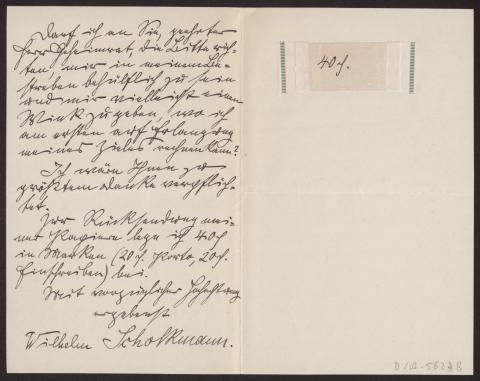 Darf ich an Sie, geehrter
Herr Geheimrat, die Bitte rich-
ten, mir in meinem Be-
streben behülflich zu sein
und mir vielleicht einen
Wink zu geben, wo ich
am ersten auf Erlangung
meines Zieles rechnen kann?
Ich wäre Ihnen zu
größtem Danke verpflich-
tet.
Zur Rücksendung mei-
ner Papiere lege ich 40 ₰
in Marken (20 ₰. Porto, 20 ₰.
Einschreiben) bei.
Mit vorzüglicher Hochachtung
ergebenst
Wilhelm Scholkmann.
40 ₰.